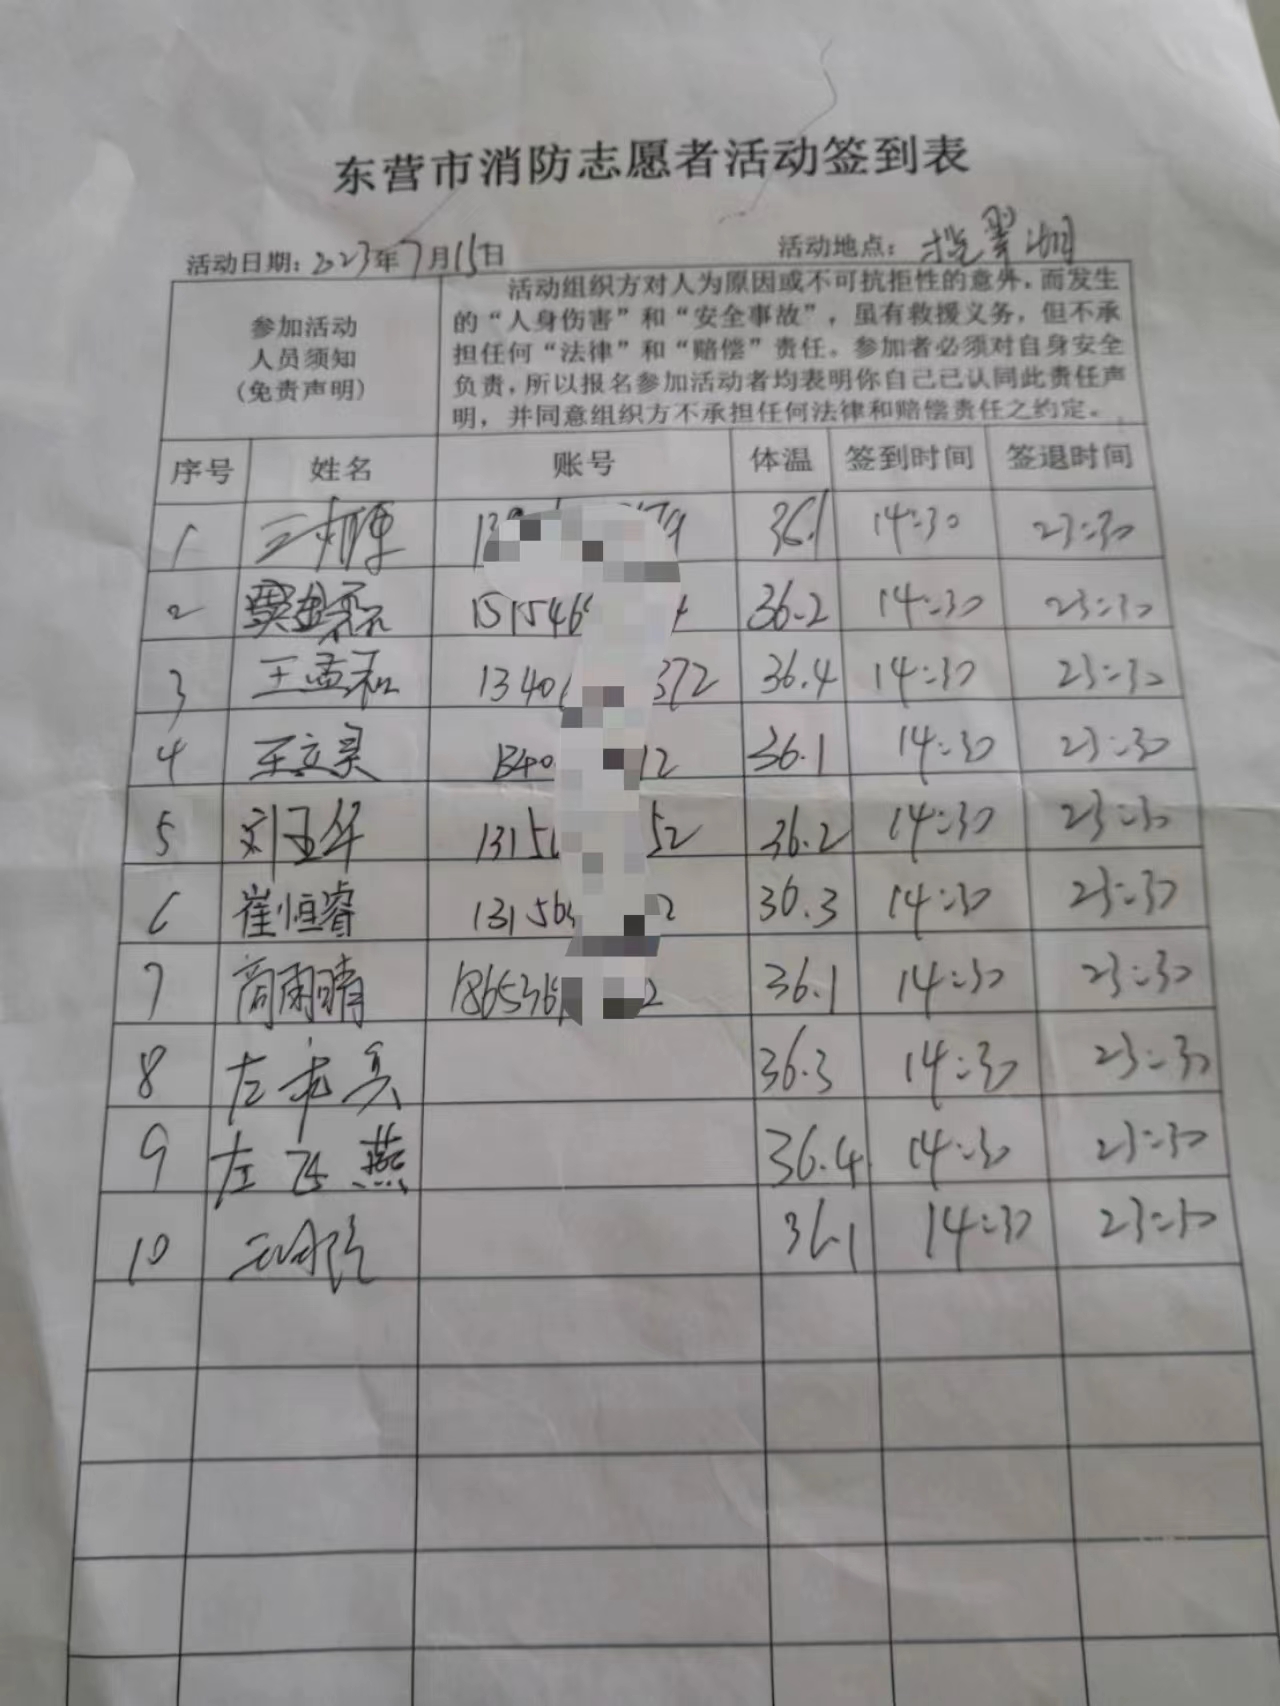 东营市消防志愿者活动签到表
活动日期：2023年7月15日 活动地点：揽翠湖
参加活动
人员须知
(免责声明)
活动组织方对人为原因或不可抗拒性的意外，而发生
的“人身伤害”和“安全事故”，虽有救援义务，但不承
担任何“法律”和“赔偿”责任。参加者必须对自身安全
负责，所以报名参加活动者均表明你自己已认同此责任声
明，并同意组织方不承担任何法律和赔偿责任之约定。
序号 姓名 账号 体温 签到时间 签退时间
1 36.1 14:30 23:30
2 15154 36.2 14:30 23:30
3 王孟和 1340 372 36.4 14:30 23:30
4 王立昊 1340 12 36.1 14:30 23:30
5 刘玉华 1315 52 36.2 14:30 23:30
6 崔恒睿 13156 2 36.3 14:30 23:30
7 商雨晴 186536 2 36.1 14:30 23:30
8 左 36.3 14:30 23:30
9 左飞燕 36.4 14:30 23:30
10 36.1 14:30 23:30